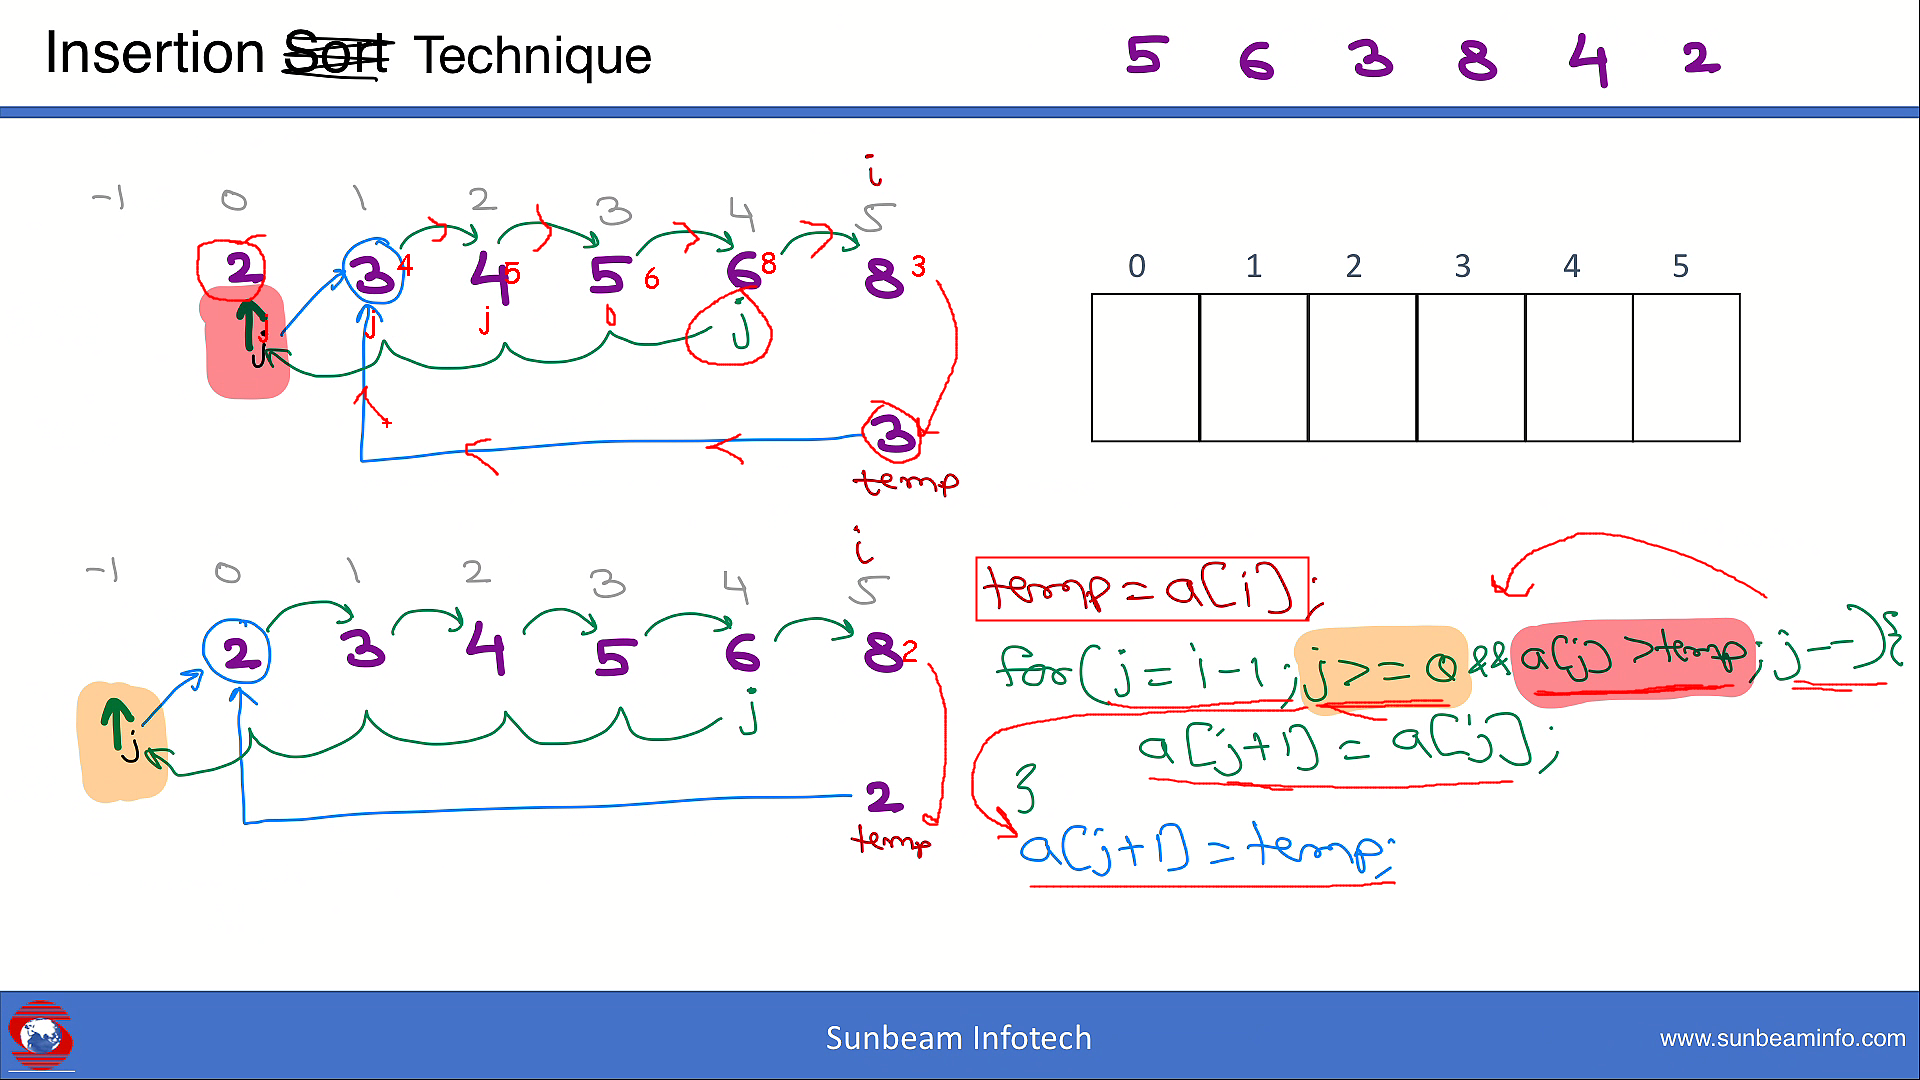 Insertion Sort Technique
5 6 3 8 4 2
i
-1 0 1 2 3 4 5
2 3 4 4 5 5 6 6 8 8 3
j j j j
j
3
temp
0 1 2 3 4 5
i
-1 0 1 2 3 4 5
2 3 4 5 6 8 2
j j
2
temp
temp = a[i];
for(j = i-1; j >= 0 && a[j] > temp; j--){
a[j+1] = a[j];
}
a[j+1] = temp;
Sunbeam Infotech
www.sunbeaminfo.com